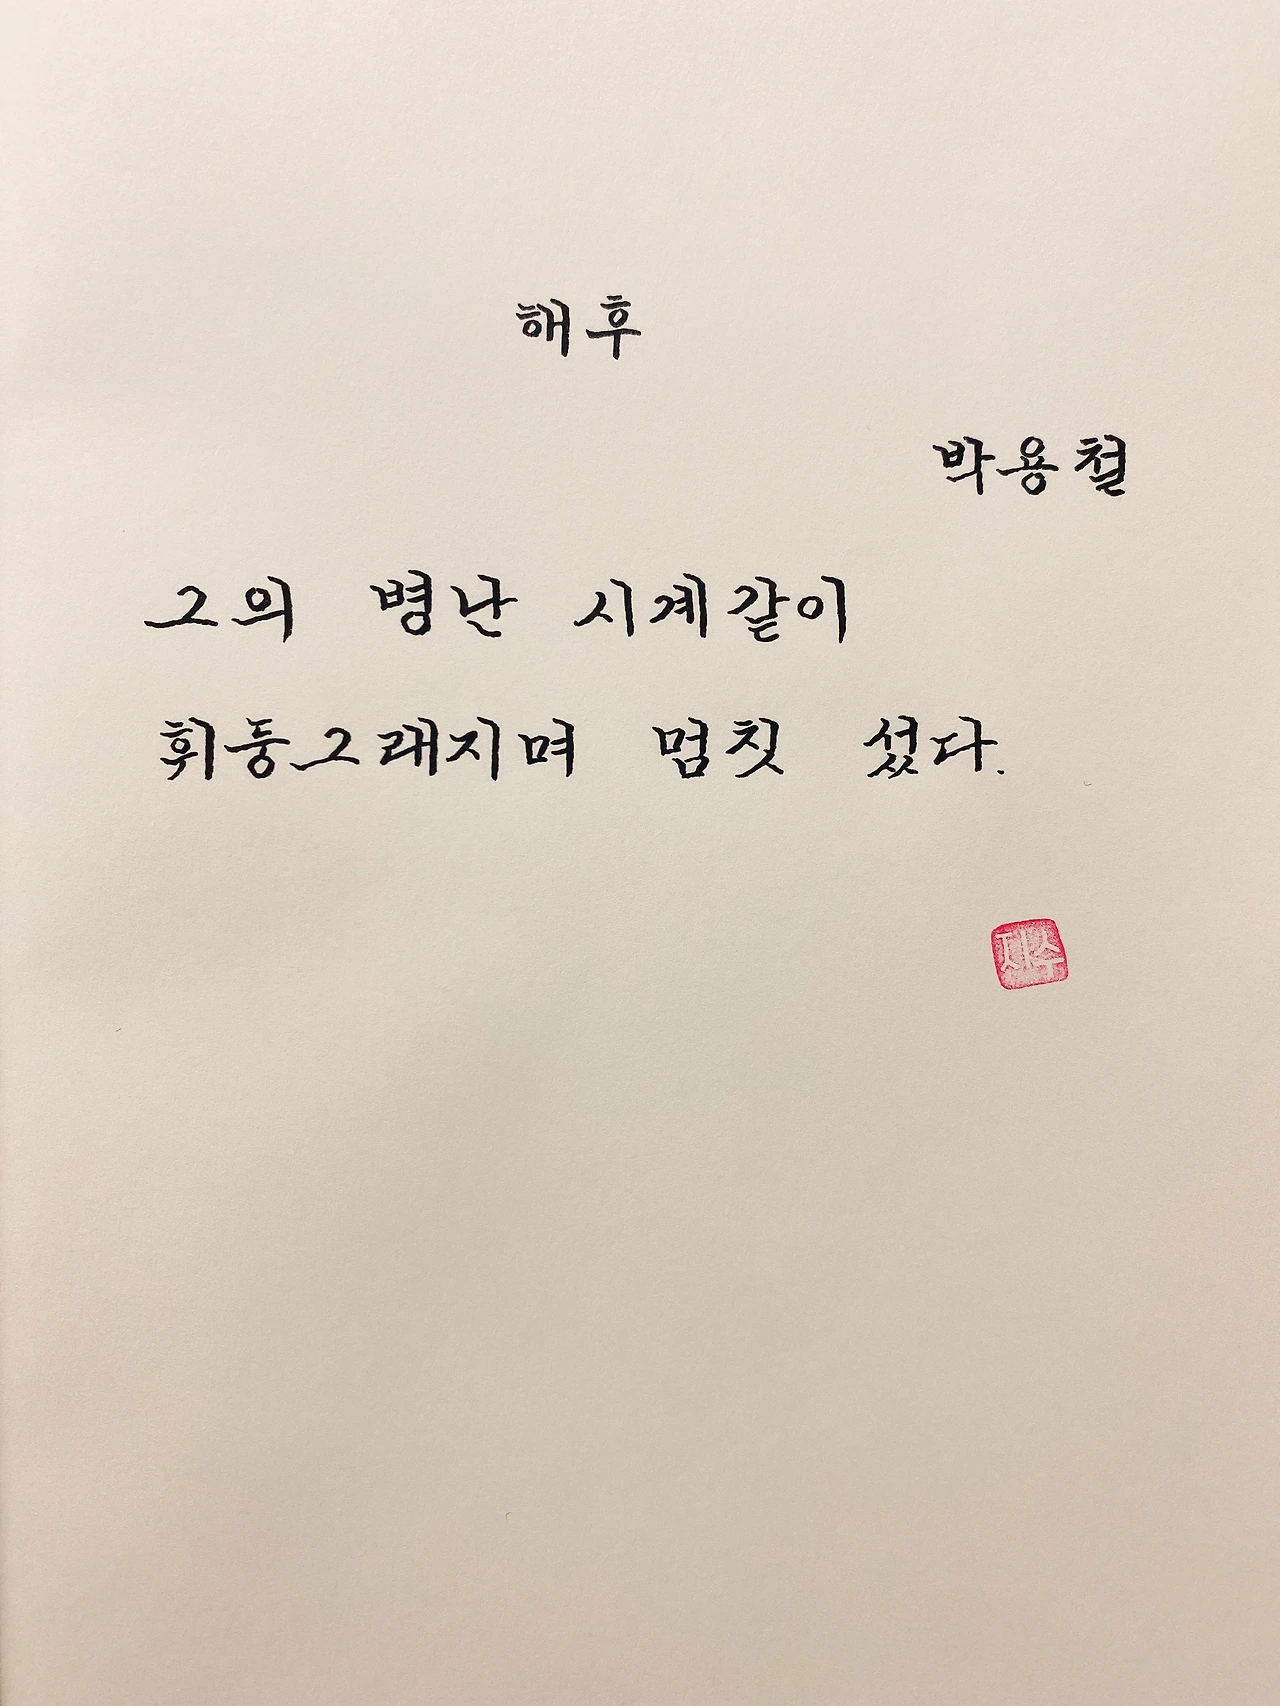 해후
박용철
그의 병난 시계같이
휘둥그래지며 멈칫 섰다.